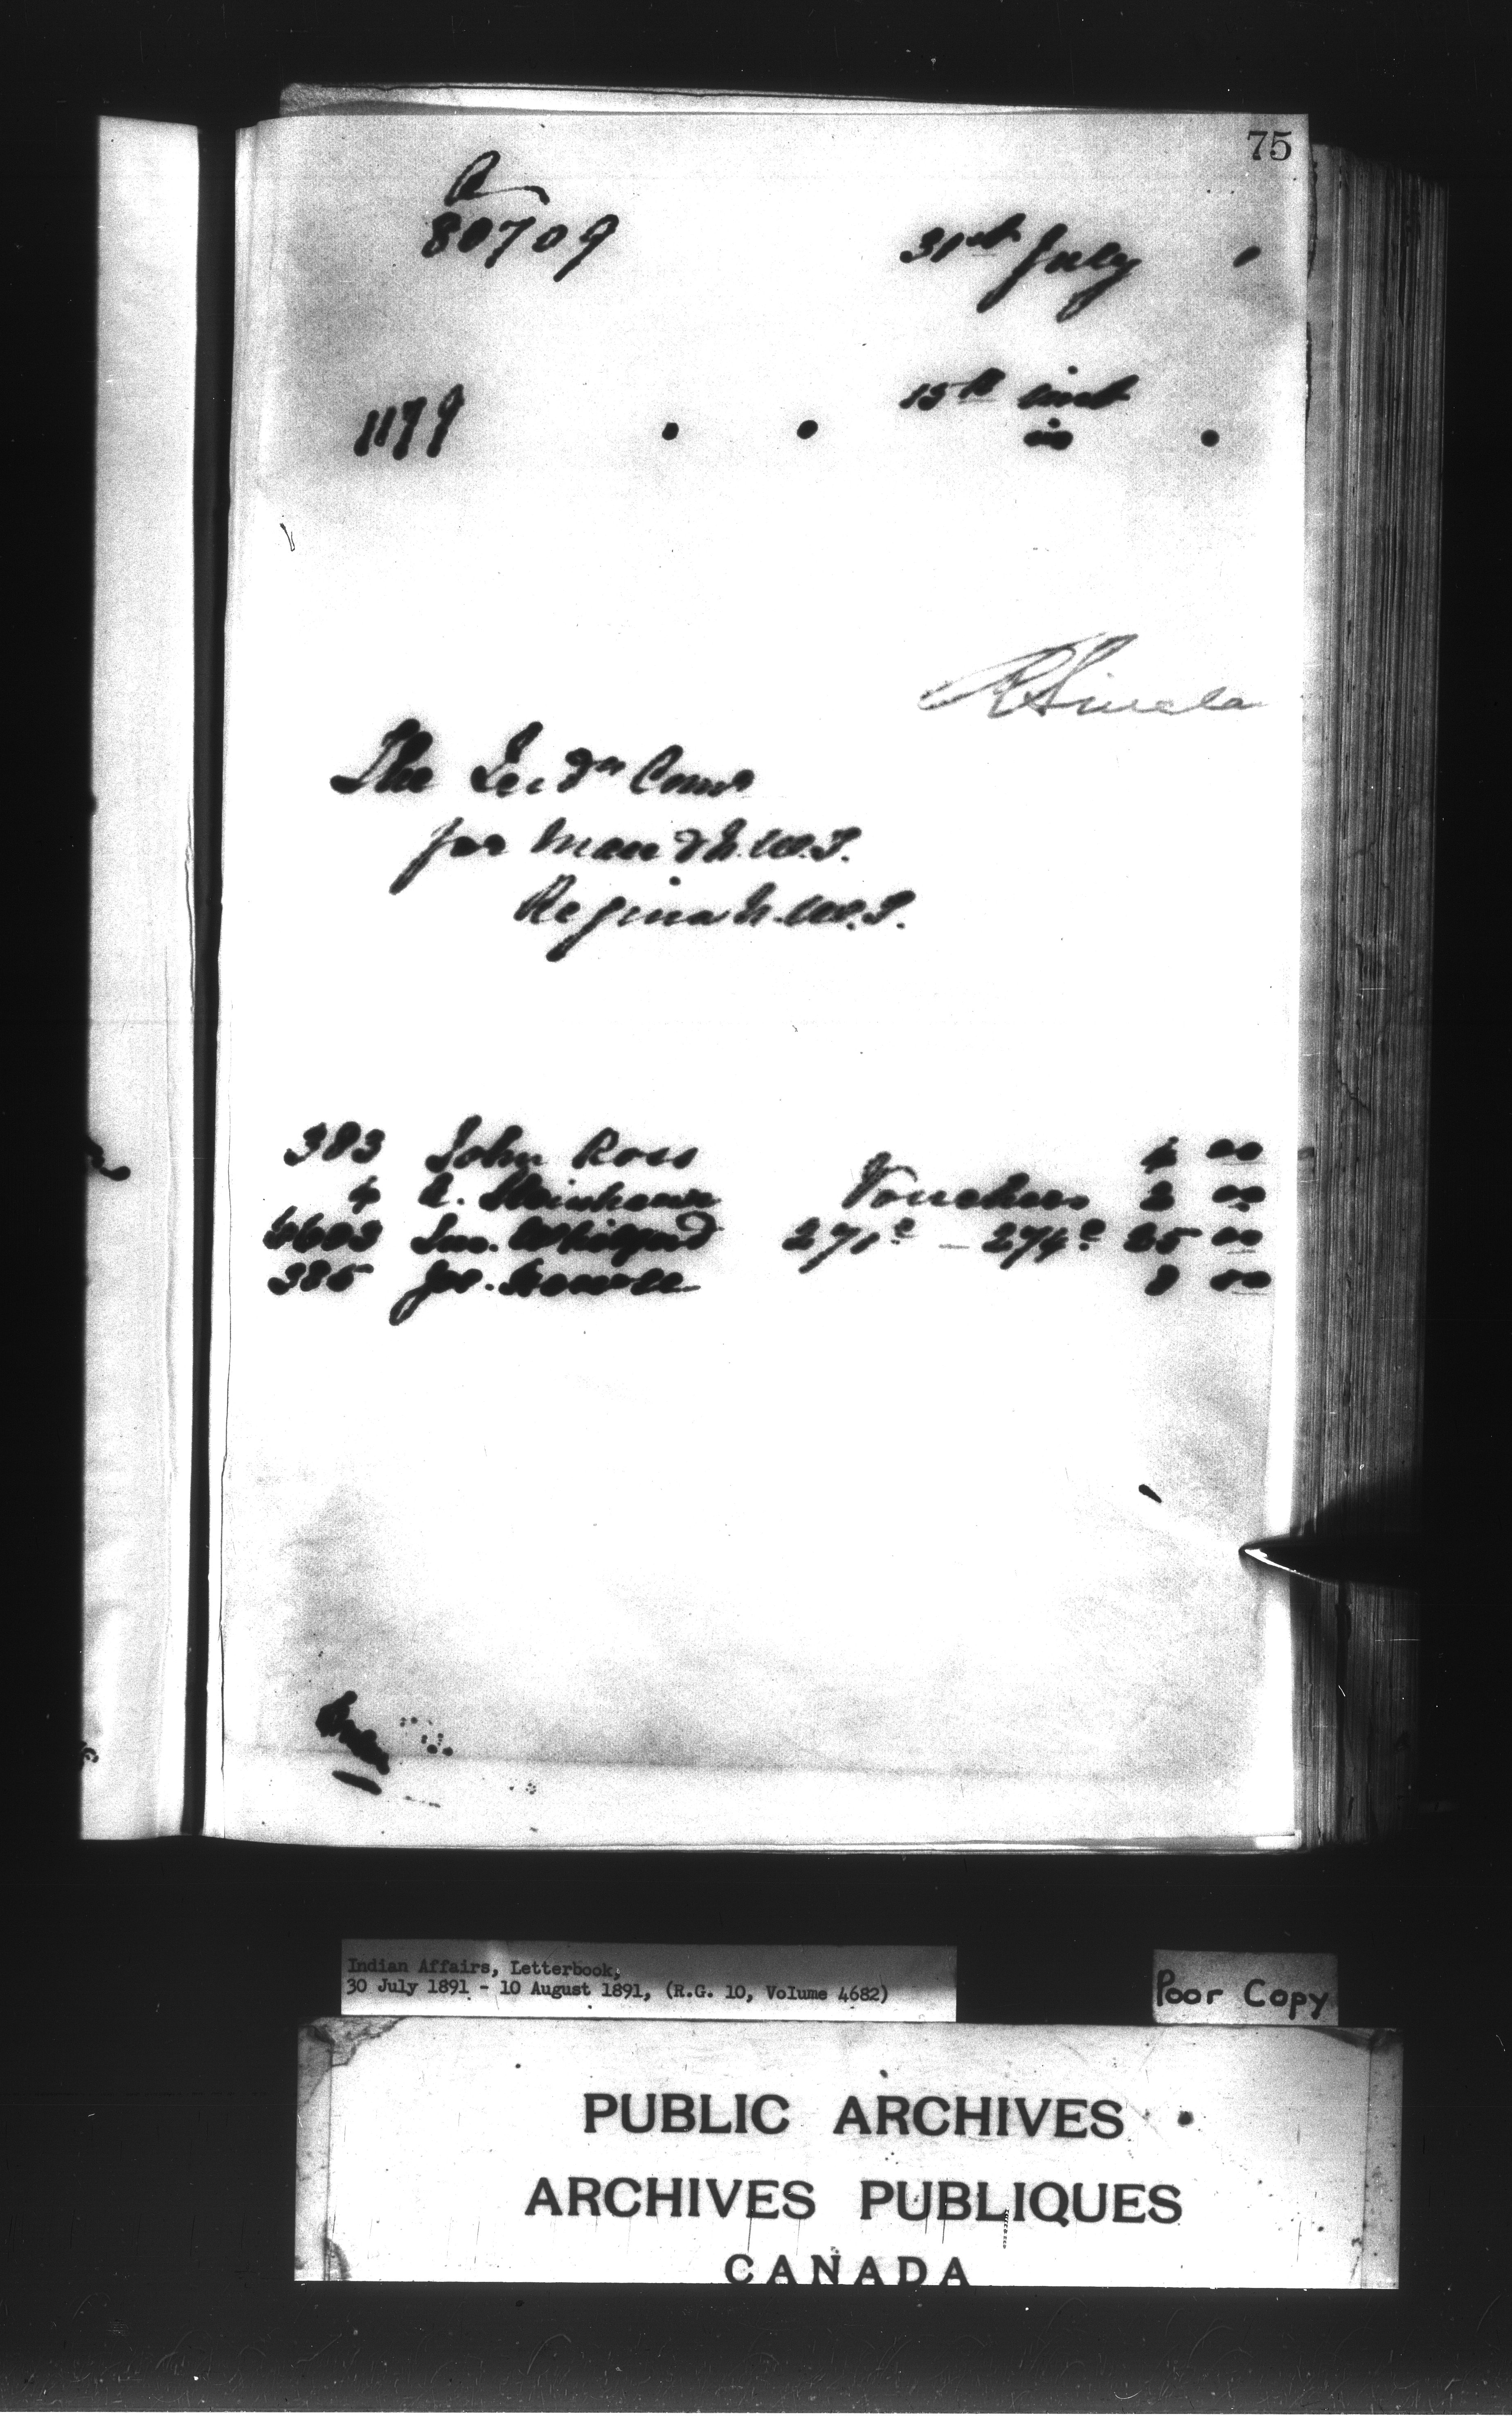 75
80709
31st July
1179 . . 15th inst .
in
R Sincla
The Ind'n Com'r
for Man & N.W.T.
Regina N.W.T.
383 John Ross 4 00
4 A. Steinhauer Vouchers 2 00
271e - 274e 25 00
385 8 00
Indian Affairs, Letterbook,
30 July 1891 - 10 August 1891, (R.G. 10, Volume 4682)
Poor Copy
PUBLIC ARCHIVES
ARCHIVES PUBLIQUES
CANADA